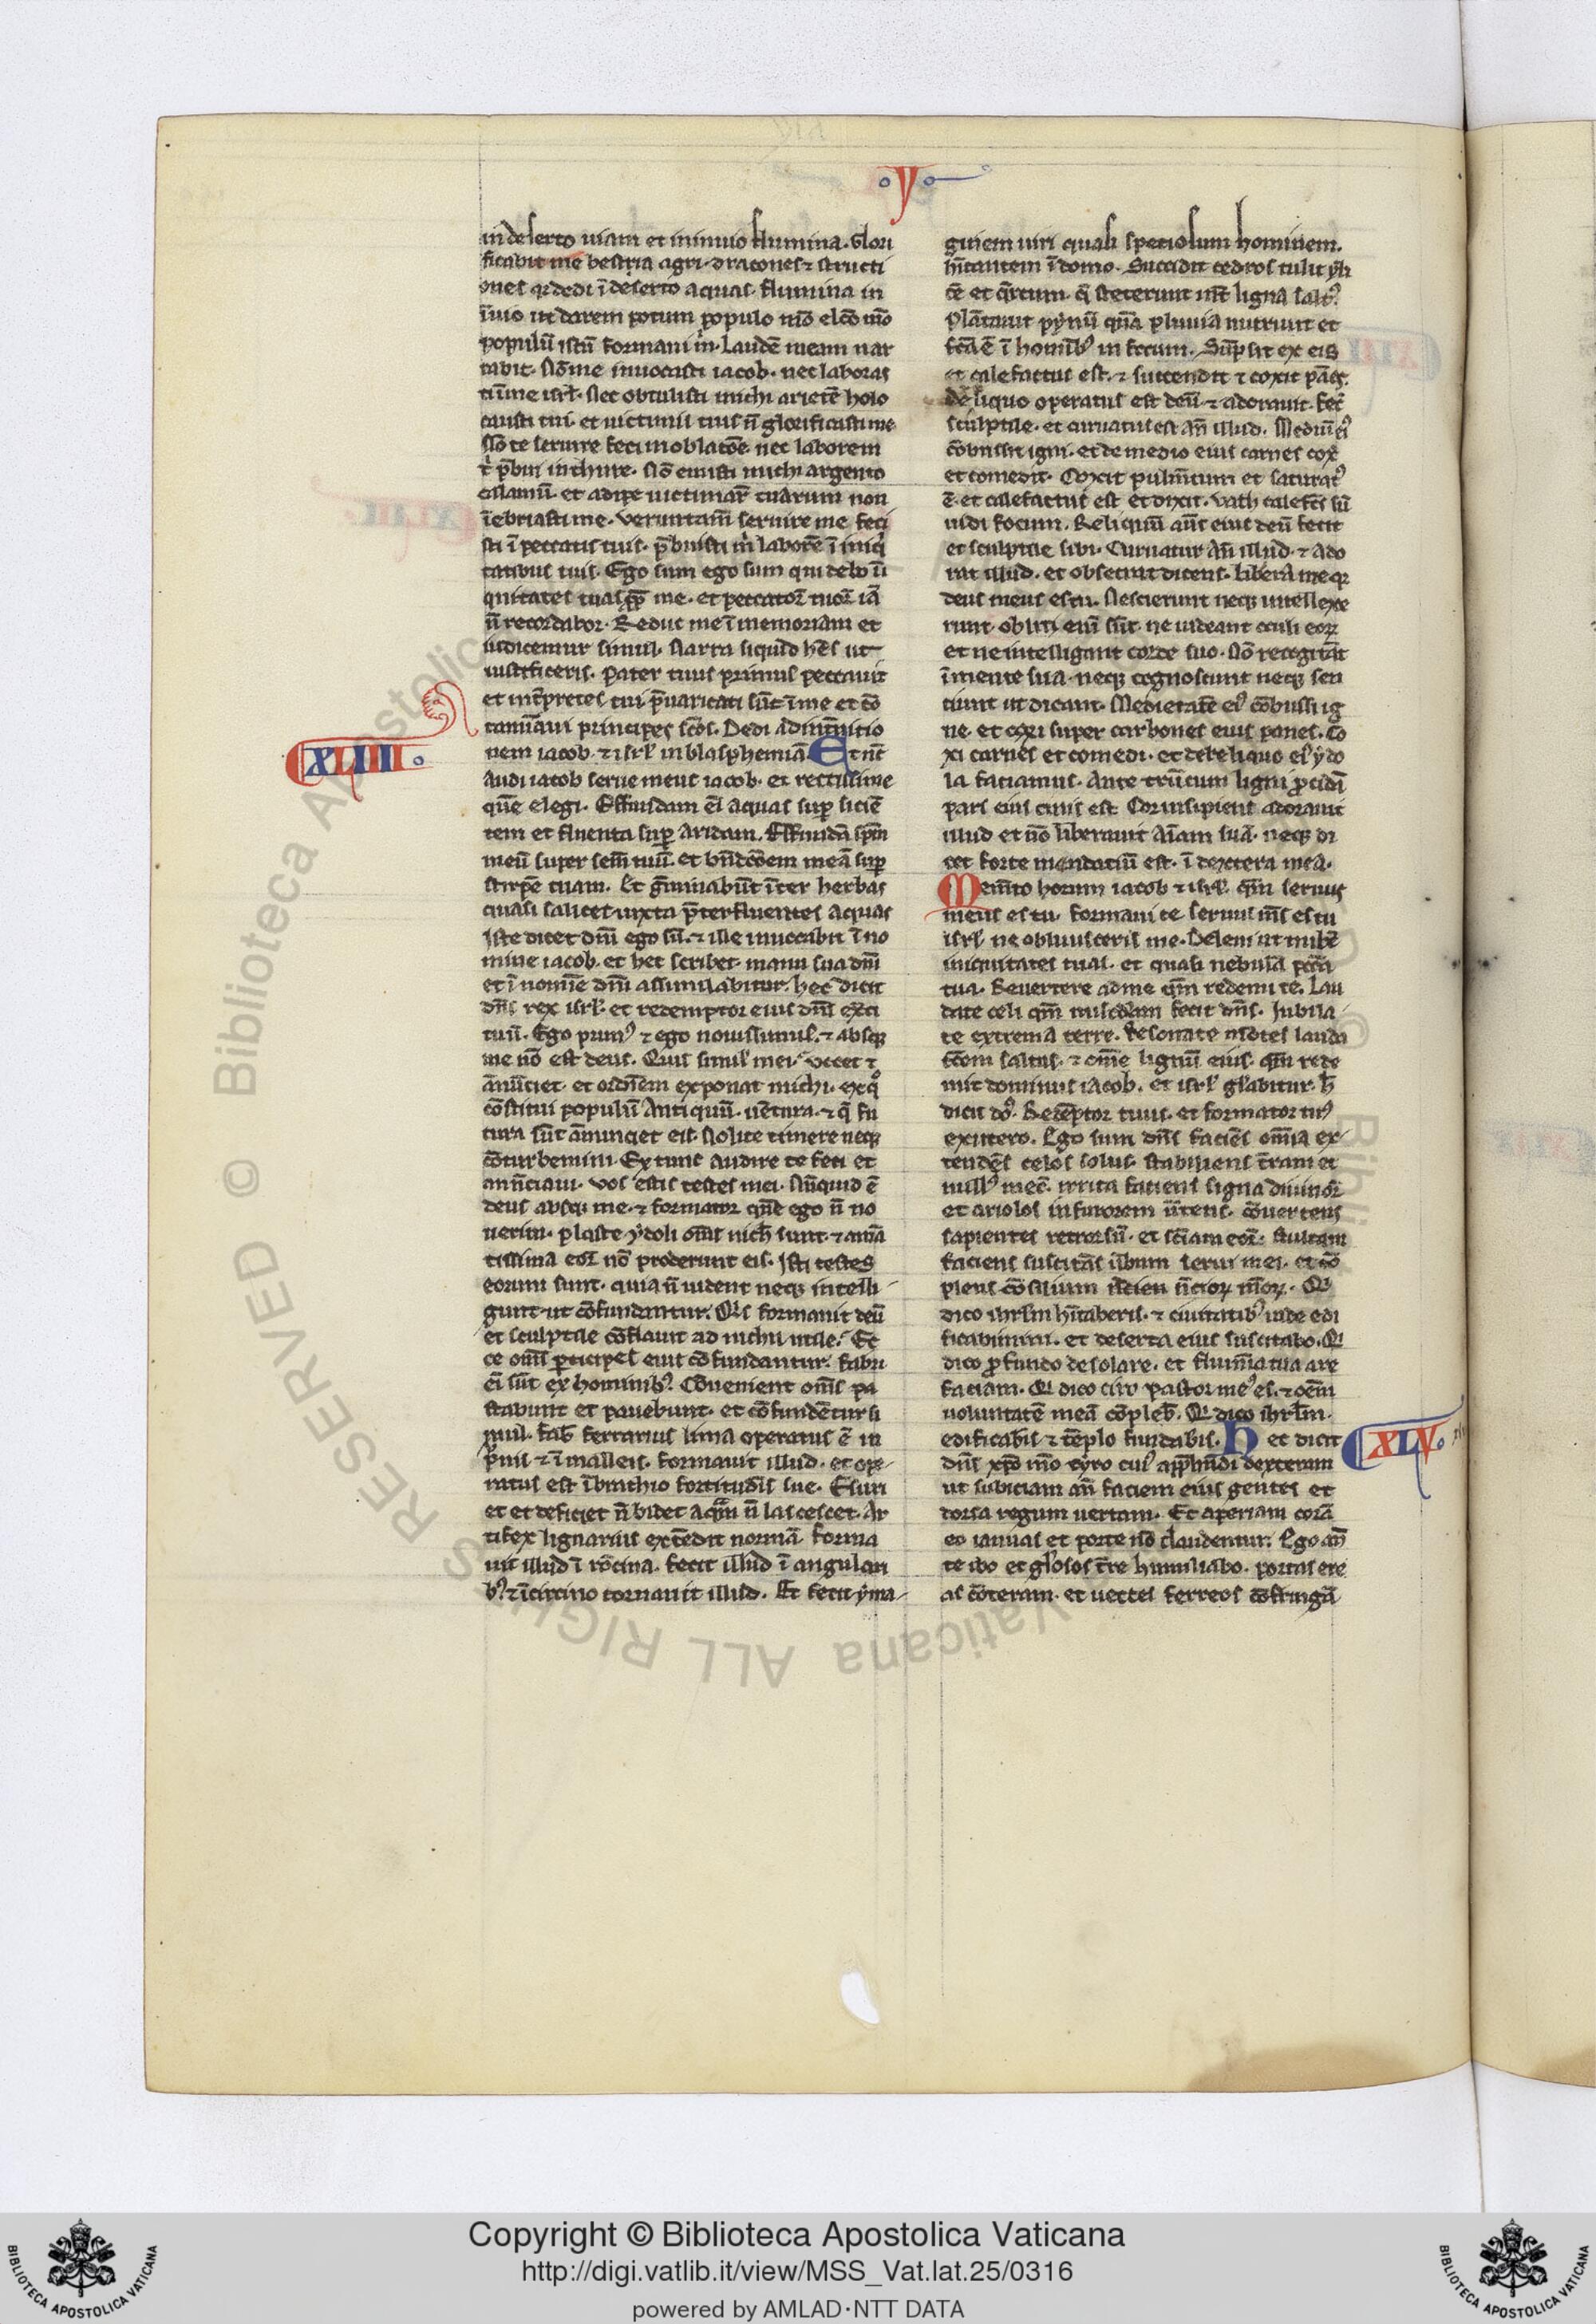 y
in deserto uiam et in inuio flumina. Glori
ficabit me bestia agri. dracones ⁊ structi
ones qr dedi ī deserto aquas. flumina in
īuio ut darem potum populo mō elcō mō
populū istū formaui in. Laudē meam nar
rabit. Nō me inuocasti iacob. nec laboras
ti ī me isrl. Nec obtulisti michi arietē holo
causti tui. et uictimis tuis n̄ glorificasti me
Nō te seruire feci in oblatōe. nec laborem
t̄ p̄bui in thure. Nō emisti michi argento
calamū. et adipe uictimar̄ tuarum non
īebriasti me. Veruntam̄ seruire me feci
sti ī peccatis tuis. p̄buisti m̄ laborē ī iniq̄
tatibus tuis. Ego sum ego sum qui deleo īi
quitates tuas ꝓp̄ me. et peccator̄ tuor̄ iā
n̄ recordabor. Reduc me ī memoriam et
iudicemur simul. Narra siquid hēs ut
iustificeris. Pater tuus primus peccauit
et int̄pretes tui p̄uaricati sūt ī me et cō
taminaui principes sc̄os. Dedi ad internitio
nem iacob. ⁊ isrl in blasphemiā Et nc̄
XLIIII
audi iacob serue meus iacob. et rectissime
quē elegi. Effundam ei aquas sup sitiē
tem et fluenta sup aridam. Effundā spm̄
meū super sem̄ tuū. et bn̄dc̄oem meā sup
stirpē tuam. Et gm̄inabūt īter herbas
quasi salices iuxta p̄terfluentes aquas
Iste dicet dn̄i ego sū. ⁊ ille inuocabit ī no
mine iacob. et hec scribet manu sua dn̄i
et ī nomīe dn̄i assimilabitur. hec dicit
dn̄s rex isrl. et redemptor eius dn̄s ex̄ci
tuū. Ego prim᾽ ⁊ ego nouissimus. ⁊ absq
me nō est deus. Quis similis mei. Vocet ⁊
ānūciet. et ordinem exponat michi. ex qͦ
cōstitui populū antiquū. uētura. ⁊ q̄ fu
tura sūt ānunciet eis. Nolite timere neq
cōturbemini. Ex tunc audire te feci et
annc̄iaui. vos estis testes mei. Nūquid ē
deus absq me. ⁊ formator quē ego n̄ no
uerim. Plaste ydoli om̄s nich̄ sunt ⁊ amā
tissima eor̄ nō proderunt eis. Isti testes
eorum sunt. quia n̄ uident neq intelli
gunt ut cōfundantur. Q̄s formauit deū
et sculptile cōflauit ad nichil utile. Ec
ce om̄s p̄ticipes eius cōfundantur. fabri
ei sūt ex hominib᾽. Cōuenient om̄s
stabunt et pauebunt. et cōfundētur si
mul. fab̄ ferrarius lima operatus ē in
p̄nis ⁊ ī malleis. formauit illud. et ope
ratus est ī brachio fortitudīs sue. Esuri
et et deficiet n̄ bibet aquā n̄ lascescet. Ar
tifex lignarius extēdit normā. forma
uit illud ī rōcina. fecit illud ī angulari
b᾽. ⁊ ī circino tornauit illud. Et fecit yma
ginem uiri quasi speciosum hominem.
hītantem ī domo. Succidit cedros tulit yli
cē et q̄rcum. q̄ steterunt int̄ ligna salt᾽.
Plātauit pynū quā pluuia nutriuit et
fc̄a ē ī homīb᾽ in focum. Sūpsit ex eis
et calefactus est. ⁊ succendit ⁊ coxit pāes.
de liquo operatus est deū ⁊ adorauit. fec̄
sculptile. et curuatus est an̄ illud. Mediū ei᾽
cōbussit igni. et de medio eius carnes cox̄
et comedit. Coxit pulmtum et saturat᾽
ē. et calefactus est et dixit. Vath calefc̄s sū
uidi focum. Reliquū aūt eius deū fecit
et sculptile sibi. Curuatur an̄ illud. ⁊ ado
rat illud. et obsecrat dicens. Libera me qr
deus meus es tu. Nescierunt neq intellexe
runt. obliti eni sūt ne uideant oculi eor̄
et ne intelligant corde suo. Nō recogitāt
ī mente sua. neq cognoscunt neq sen
ciunt ut dicant. Medietatē ei᾽ cōbussi ig
ne. et coxi super carbones eius panes. Co
xi carnes et comedi. et de reliquo ei᾽ ydo
la faciamus. Ante trūcum ligni p̄cidā
pars eius cinis est. Cor insipiens adorauit
illud et nō liberauit aīam suā. neq di
cet forte mendaciū est. ī dextera mea.
Mem̄to horum iacob ⁊ isrl. qm̄ seruus
meus es tu. formaui te seruus m̄s es tu
isrl ne obliuisceris me. Deleui ut nubē
iniquitates tuas. et quasi nebulā pccā
tua. Reuertere ad me qm̄ redemi te. Lau
date celi qm̄ mīsc̄diam fecit dn̄s. Iubila
te extrema terre. Resonate mōtes lauda
cōem saltus. ⁊ om̄e lignū eius. qm̄ rede
mit dominus iacob. et isrl gl̄abitur. h̄
dicit do᾽. Redēptor tuus. et formator tu᾽
ex utero. Ego sum dn̄s faciēs om̄ia ex
tendēs celos solus. stabiliens t̄ram et
null᾽ mec̄. irrita faciens signa diuinor̄
et ariolos in furorem ūtens. cōuertens
sapientes retrorsū. et sc̄iam eor̄. stultam
faciens suscitās ūbum serui mei. et cō
plens cōsilium nūciorꝝ suorꝝ. Qi
dico ihrlm hītaberis. ⁊ ciuitatib᾽ iude edi
ficabimini. et deserta eius suscitabo. Qi
dico ꝓfundo desolare. et flumīa tua are
faciam. Qi dico ciro pastor me᾽ es. ⁊ oēm
uoluntatē meā cōpleb̄. Qi dico ihrlm.
edificab̄is ⁊ tēplo fundab̄is. Hec dicit
XLV
dn̄s xpō mō cyro cui᾽ app̄hn̄di dexteram
ut subiciam an̄ faciem eius gentes et
dorsa regum uertam. Et aperiam corā
eo ianuas et porte nō claudentur. Ego an̄
te ibo et gl̄osos t̄re humiliabo. portas ere
as cōteram. et uectes ferreos cōfringā
Copyright © Biblioteca Apostolica Vaticana
http://digi.vatlib.it/view/MSS_Vat.lat.25/0316
powered by AMLAD·NTT DATA
BIBLIOTECA APOSTOLICA VATICANA
BIBLIOTECA APOSTOLICA VATICANA
© Biblioteca Apostolica Vaticana ALL RIGHTS RESERVED